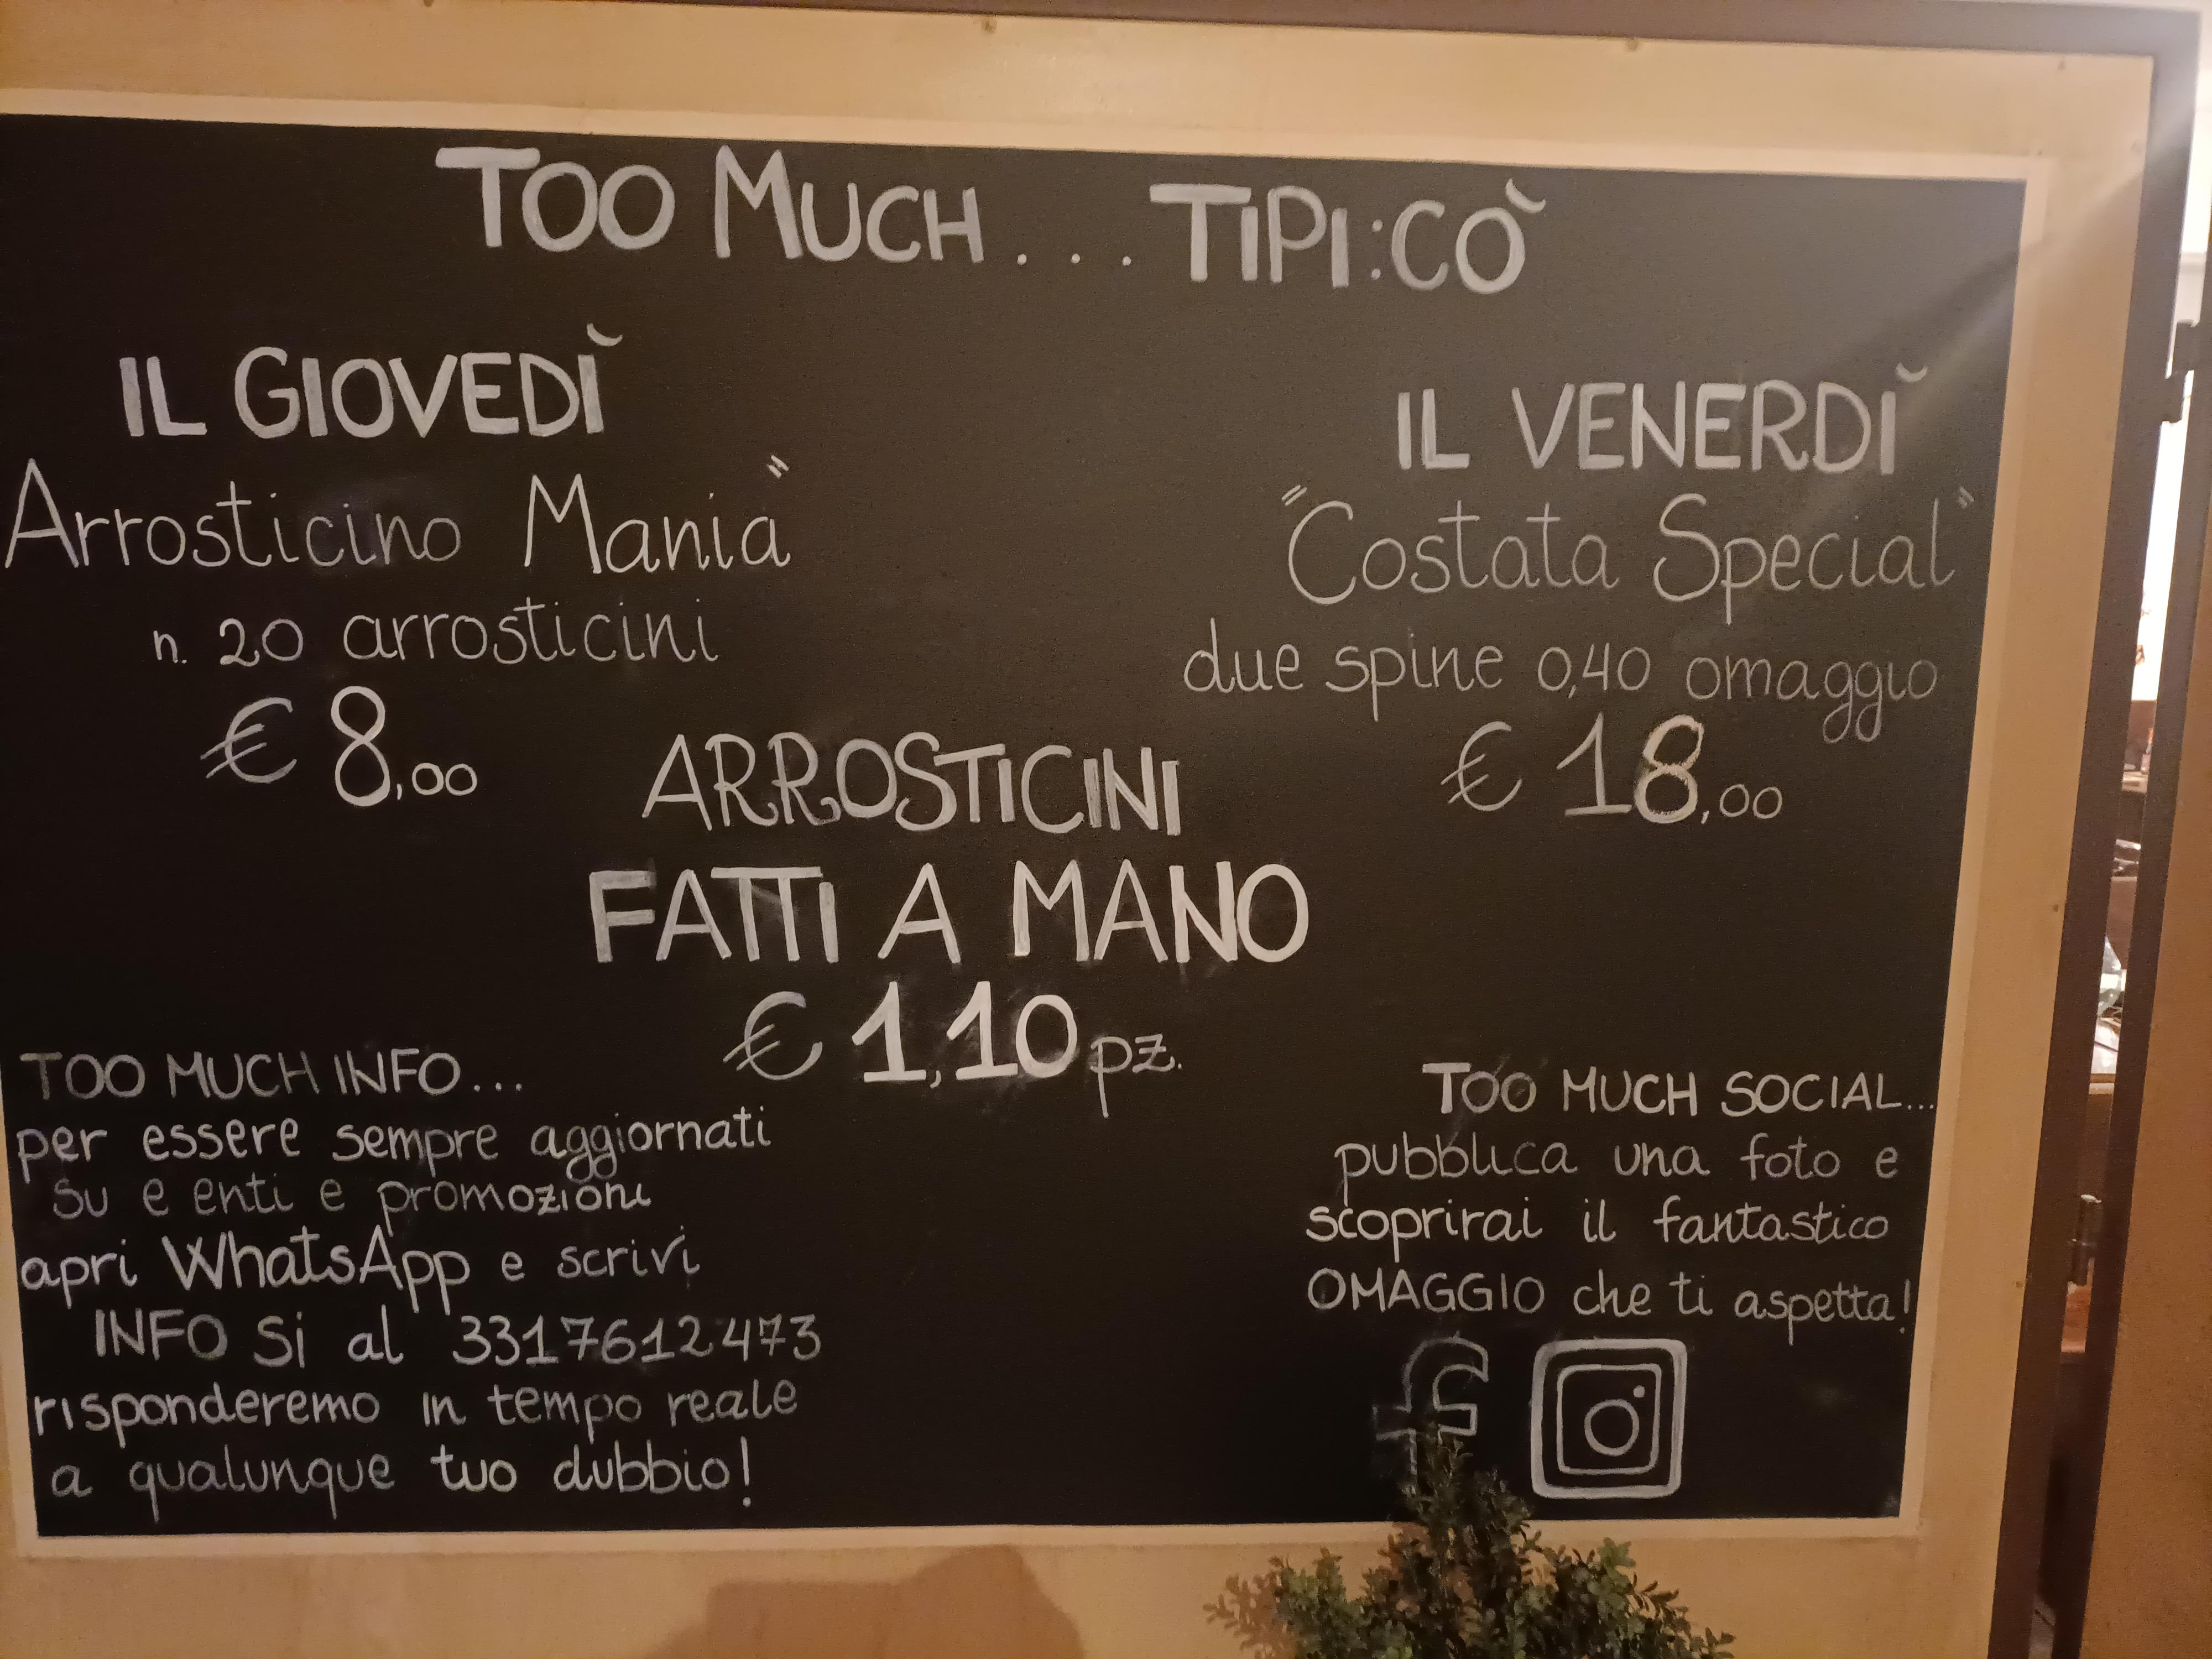 TOO MUCH... TIPI:CÒ
IL GIOVEDÌ
Arrosticino Mania"
n. 20 arrosticini
€ 8,00
IL VENERDÌ
"Costata Special"
due spine 0,40 omaggio
€ 18,00
ARROSTICINI
FATTI A MANO
€ 1,10 pz.
TOO MUCH INFO...
per essere sempre aggiornati
su e enti e promozioni
apri WhatsApp e scrivi
INFO Si al 3317612473
risponderemo in tempo reale
a qualunque tuo dubbio!
TOO MUCH SOCIAL...
pubblica una foto e
scoprirai il fantastico
OMAGGIO che ti aspetta!